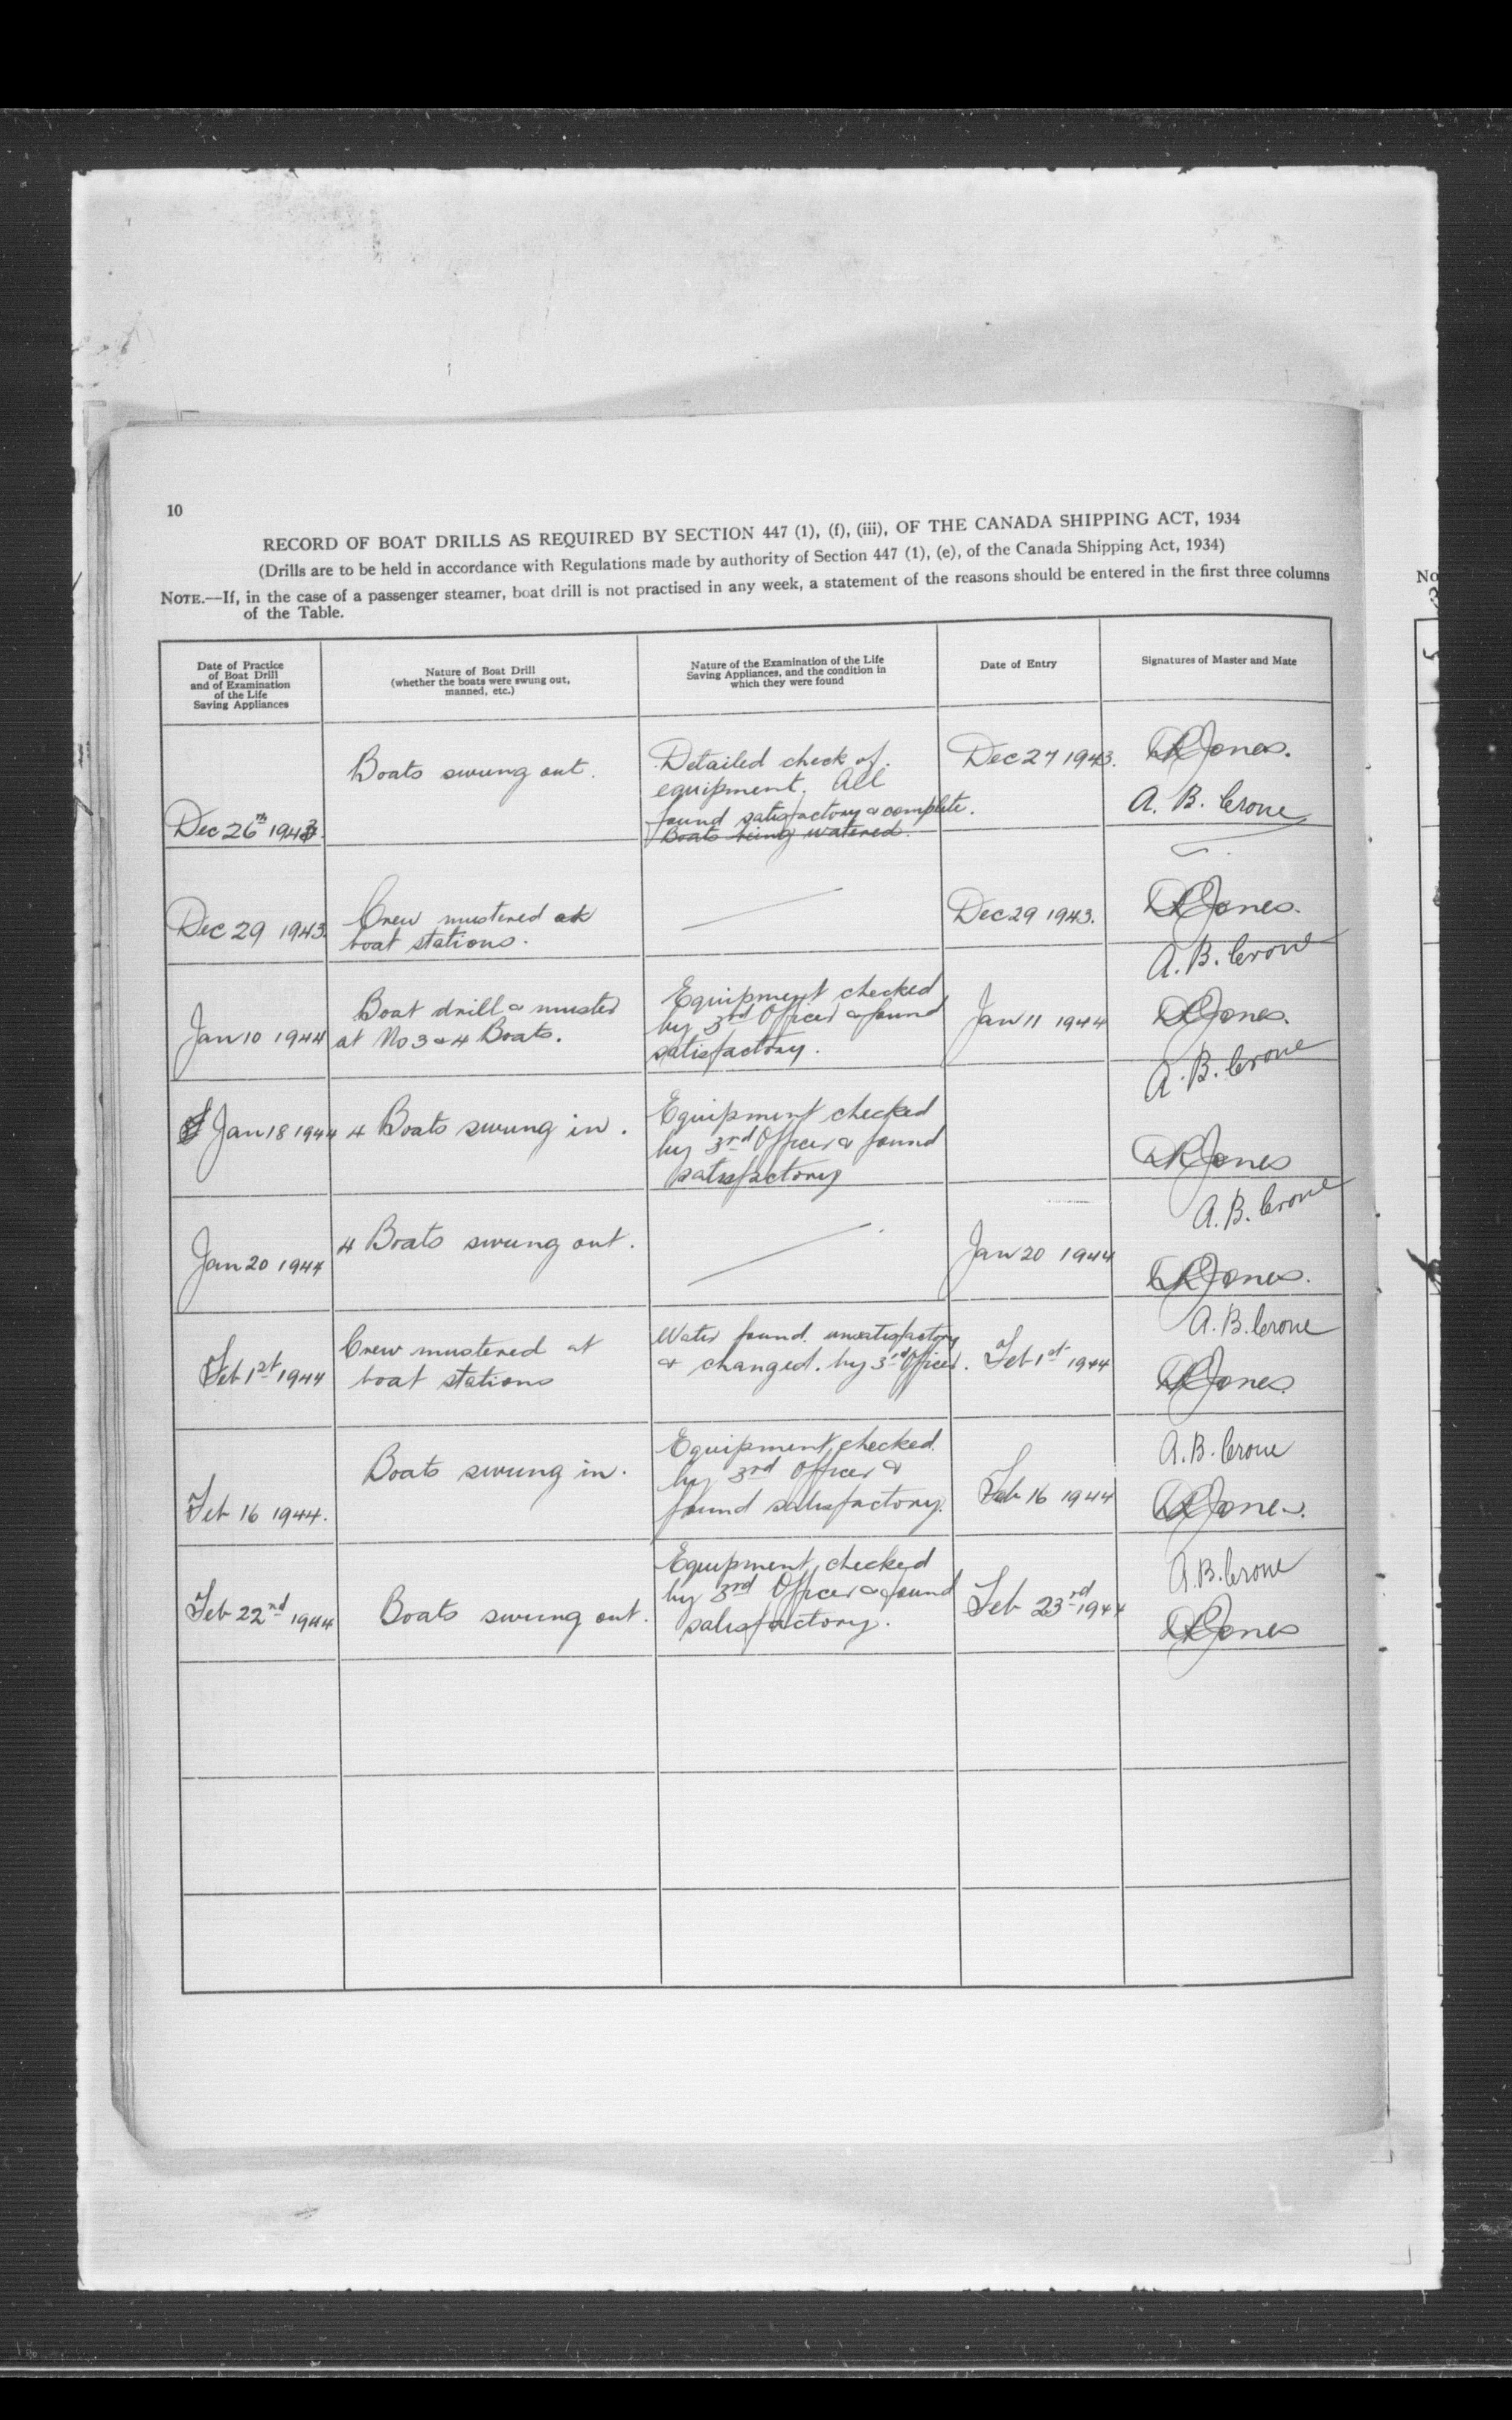 10
RECORD OF BOAT DRILLS AS REQUIRED BY SECTION 447 (1), (f), (iii), OF THE CANADA SHIPPING ACT, 1934
(Drills are to be held in accordance with Regulations made by authority of Section 447 (1), (e), of the Canada Shipping Act, 1934)
NOTE.—If, in the case of a passenger steamer, boat drill is not practised in any week, a statement of the reasons should be entered in the first three columns
of the Table.
Date of Practice
of Boat Drill
and of Examination
of the Life
Saving Appliances
Nature of Boat Drill
(whether the boats were swung out,
manned, etc.)
Nature of the Examination of the Life
Saving Appliances, and the condition in
which they were found
Date of Entry
Signatures of Master and Mate
Dec 26th 1943.
Boats swung out.
Detailed check of
equipment. All
found satisfactory & complete.
Boats being watered.
Dec 27 1943.
Jones.
A. B. Crone
Dec 29 1943.
Crew mustered at
boat stations.
Dec 29 1943.
Jones.
A. B. Crone
Jan 10 1944
Boat drill & muster
at No 3 & 4 Boats.
Equipment checked
by 3rd Officer & found
satisfactory.
Jan 11 1944
Jones.
A. B. Crone
Jan 18 1944
4 Boats swung in.
Equipment checked
by 3rd Officer & found
satisfactory
Jones
A. B. Crone
Jan 20 1944
4 Boats swung out.
Jan 20 1944
Jones.
A. B. Crone
Feb 1st 1944
Crew mustered at
boat stations
Water found unsatisfactory
& changed. by 3rd Officer.
Feb 1st 1944
Jones.
A. B. Crone
Feb 16 1944.
Boats swung in.
Equipment checked.
by 3rd Officer &
found satisfactory.
Feb 16 1944
Jones.
A. B. Crone
Feb 22nd 1944
Boats swung out.
Equipment checked
by 3rd Officer & found
satisfactory.
Feb 23rd 1944
Jones
No